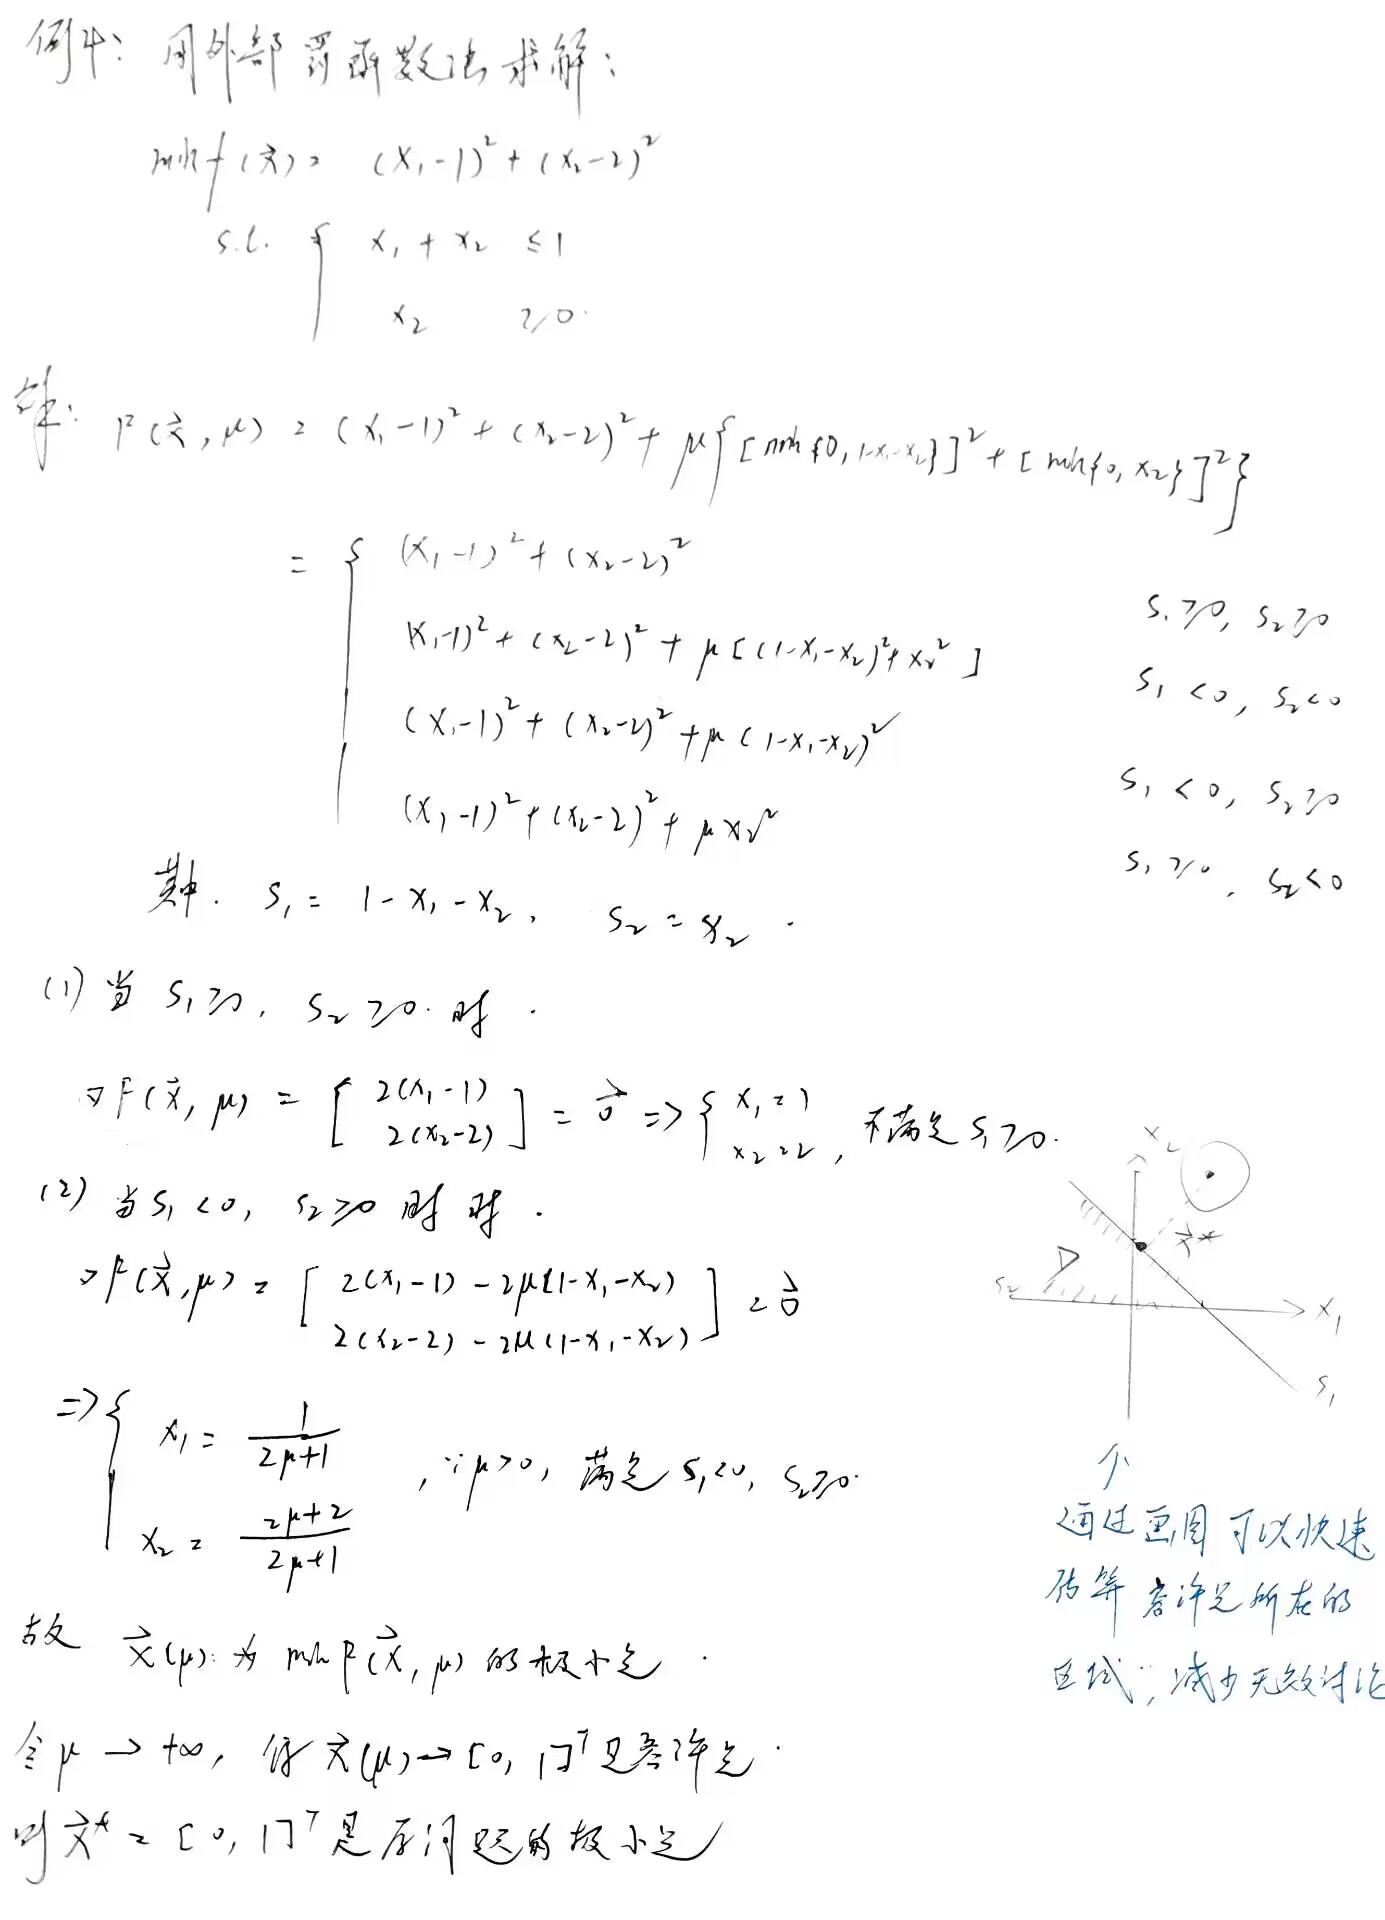 例4: 用外部罚函数法求解:
min f(x⃗) = (x₁-1)² + (x₂-2)²
s.t. { x₁ + x₂ ≤ 1
x₂ ≥ 0.
解: F(x⃗, μ) = (x₁-1)² + (x₂-2)² + μ{[min{0, 1-x₁-x₂}]² + [min{0, x₂}]²}
= { (x₁-1)² + (x₂-2)² s₁ ≥ 0, s₂ ≥ 0
(x₁-1)² + (x₂-2)² + μ[(1-x₁-x₂)² + x₂²] s₁ < 0, s₂ < 0
(x₁-1)² + (x₂-2)² + μ(1-x₁-x₂)² s₁ < 0, s₂ ≥ 0
(x₁-1)² + (x₂-2)² + μx₂² s₁ ≥ 0, s₂ < 0
其中. s₁ = 1 - x₁ - x₂, s₂ = x₂.
(1) 当 s₁ ≥ 0, s₂ ≥ 0. 时.
∇F(x⃗, μ) = [ 2(x₁-1) 2(x₂-2) ] = 0⃗ => { x₁ = 1 x₂ = 2, 不满足 s₁ ≥ 0.
(2) 当 s₁ < 0, s₂ ≥ 0 时 时.
∇F(x⃗, μ) = [ 2(x₁-1) - 2μ(1-x₁-x₂) 2(x₂-2) - 2μ(1-x₁-x₂) ] = 0⃗
=> { x₁ = 1/(2μ+1)
x₂ = (2μ+2)/(2μ+1)
, ∵ μ > 0, 满足 s₁ < 0, s₂ ≥ 0.
故 x⃗(μ) 为 min F(x⃗, μ) 的极小点.
令 μ → +∞, 得 x⃗(μ) → [0, 1]ᵀ 是容许点.
则 x⃗* = [0, 1]ᵀ 是原问题的极小点
x₂
x⃗*
D
s₂
x₁
s₁
↑
通过画图可以快速
估算容许点所在的
区域, 减少无效讨论